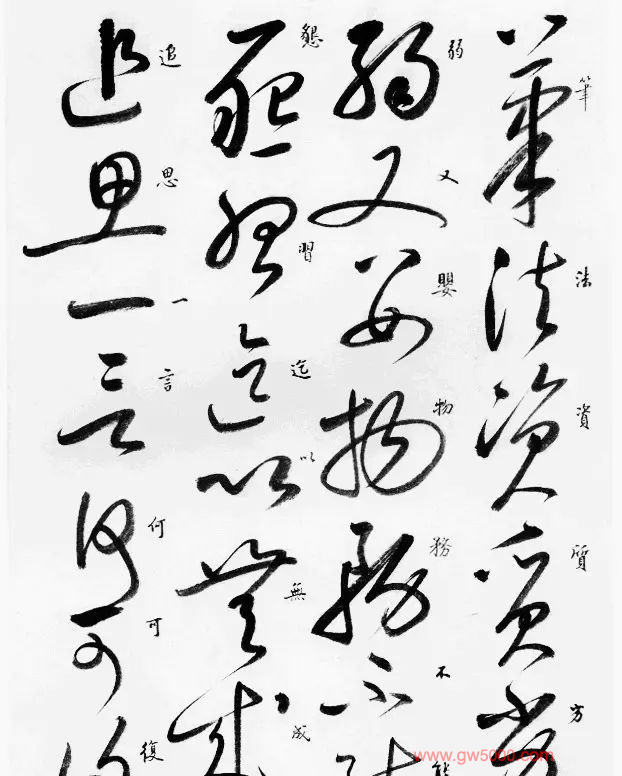 筆法資質
弱又嬰物務不能
懇習迄以無成
追思一言何可復
www.gw5000.com